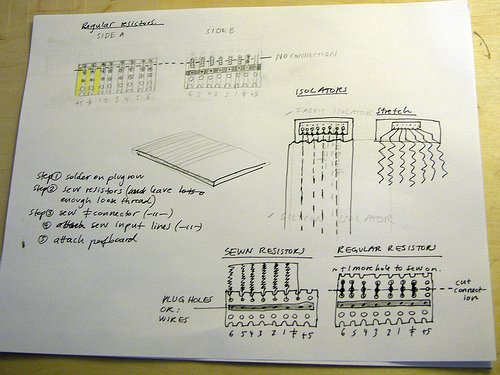 Regular resistors:
SIDE A
SIDE B
NO CONNECTION
+5 ≠ 1 2 3 4 5 6
6 5 4 3 2 1 ≠ +5
ISOLATORS
FABRIC ISOLATOR
stretch
Step① solder on plug row
Step② sew resistors (and leave lots
enough loose thread)
Step③ sew ≠ connector (-11-)
④ attach sew input lines (-11-)
⑤ attach perfboard
SILICON ISOLATOR
SEWN RESISTORS
PLUG HOLES
OR:
WIRES
6 5 4 3 2 1 ≠ +5
REGULAR RESISTOR
~ +1 more hole to sew on.
cut
connect
ion
6 5 4 3 2 1 ≠ +5